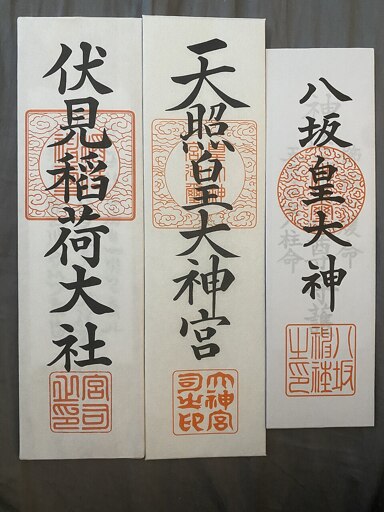 八坂皇大神
八坂
神社
之印
天照皇大神宮
大神宮
司之印
伏見稲荷大社
宮司
之印